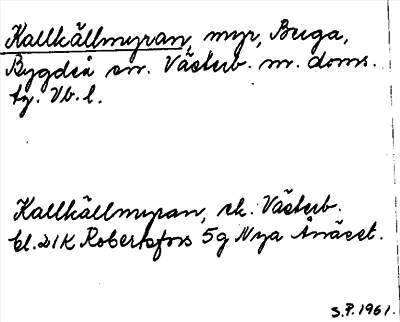 Kallkällmyran, myr, Buga,
Bygdeå sn. Västerb. m. doms.
tg. Vb. l.
Kallkällmyran, ek. Västerb.
bl. 21K Robertsfors 5g Nya Ånäset.
S.P. 1961.